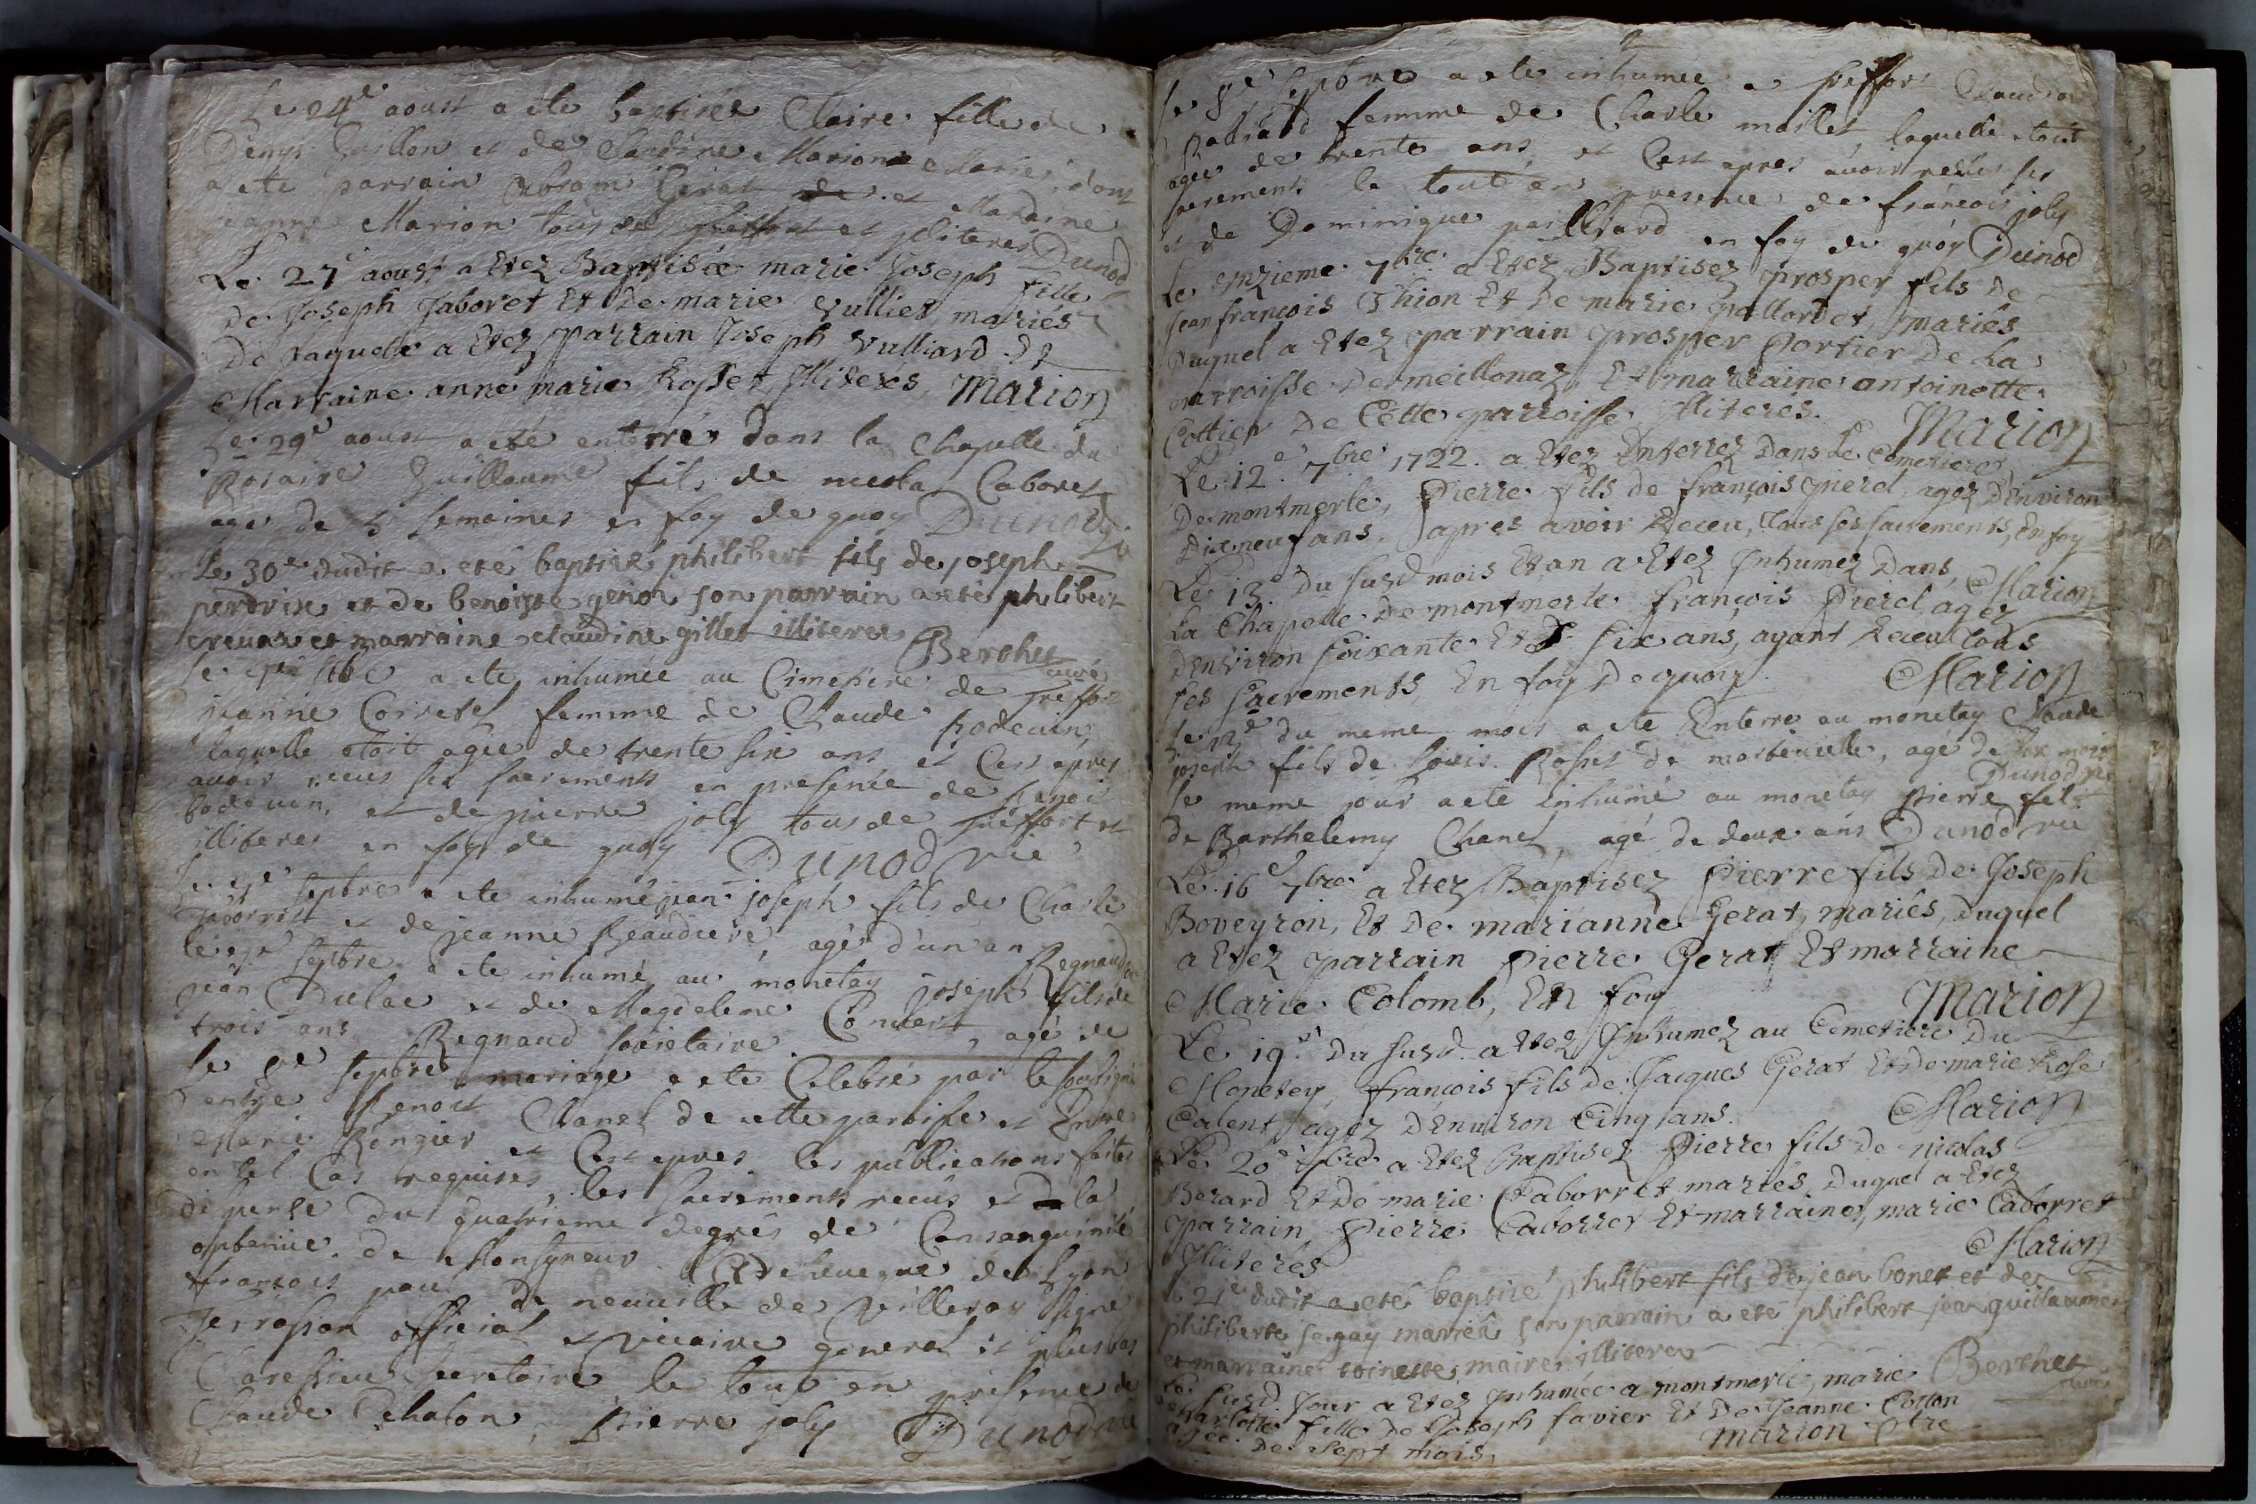 Le 24e aoust a ete baptisée Claire fille de
Denys Guillon et de Claudine Marion mariés, dont
a ete parrain Abram Gerat et Maraine
jeanne Marion tous de et illiteres Dunod
Le 27e aoust a Etez Baptisée marie Joseph fille
De Joseph Jaboret Et De marie Vulliet mariés
De Laquele a Etez Parrain Joseph Vulliard Et
Marraine anne marie Rosset, Illiterés, Marion
Le 29e aoust a eté enterré dans la Chapelle du
Rosaire Guillaume fils de nicola Caboret
age de 5 semaines en foy de quoy Dunod
Le 30e dudit a eté baptisé philibert fils de joseph
perdrix et de benoiste genon son parrain a eté philibert
crevat et marraine claudine gillet illiteres Berthet
curé
Le a ete inhumée au Cimetiere de preffort
jeanne femme de Claude Bodevin
laquelle etoit agée de trente six ans et C'est apres
avoir receus ses sacrements en presence de benoit
bodevin, et de pierre joly tous de preffort et
illiteres en foy de quoy Dunod vic
Le septbre a ete inhumé jean joseph fils de Charle
Caborret et de jeanne Beaudiere, agé d'un an Regnaud
Le septbre a ete inhumé au monetay joseph fils de
jean Dulac et de Magdelene Convert, agé de
trois ans Regnaud societaire
Le 8e septbre mariage a ete Celebré par le soussigné
entre Benoit Chanel de cette paroisse et
Marie Rongier et C'est apres les publications faites
en tel Cas requises, les sacrements receus et la
dispense du quatrieme degrés de Consanguinité
obtenue de Monsigneur Archeveque de Lyon
francois paul de neuville de Villeroy signé
Terrasson official et Vicaire general et plus bas
secretaire le tout en présence de
Claude Chalon, Pierre joly Dunod vic
Le 8e sepbre a ete inhumée a preffort Claudine
femme de Charle maillet laquelle etoit
agée de trente ans et C'est apres avoir receus ses
sacrements le tout en presence de françois joly
et de Dominique paillard en foy de quoy Dunod
Le onzieme 7bre a Etez Baptisez prosper fils De
jean françois Thion Et De marie pallordet, mariés
Duquel a Etez parrain prosper Portier De La
parroisse De meillonaz, Et marraine antoinette
Cottier De Cette parroisse Illiterés. Marion
Le 12e 7bre 1722. a Etez Enterrez Dans Le Cemetiere
De montmerle, Pierre fils de françois pierel, agez D'Environ
Dix neuf ans, apres avoir Receu, tous ses sacrements, En foy
Marion
Le 13e Du susd. mois Et an a Etez Inhumez Dans
La Chapelle De montmerle françois Pierel agez
D'environ soixante Et six ans, ayant Receu tous
ses sacrements En foy De quoy. Marion
Le du meme mois a ete Enterré au monetay Claude
joseph fils de Louis Rosset de, agé de six mois
Dunod
Le meme jour a ete inhumé au monetay pierre fils
de Barthelemy Chanel, agé de deux ans Dunod vic
Le 16e 7bre a Etez Baptisez Pierre fils De Joseph
Boveyron, Et De marianne Gerat, mariés, Duquel
a Etez parrain Pierre Gerat Et marraine
Marie Colomb, En foy Marion
Le 19e Du susd. a Etez Inhumez au Cemetiere Du
Monetey, françois fils de Jacques Gerat Et De marie Rose
Calent, agez D'Environ Cinq ans. Marion
Le 20e 7bre a Etez Baptisez Pierre fils De nicolas
Berard Et De marie Caborret mariés, Duquel a Etez
parrain, Pierre Caborret Et marraine, marie Caborret
Illiterés Marion
Le 21e dudit a eté baptisé philibert fils de jean bonet et de
philiberte sergay mariés son parrain a eté philibert jean guillaume
et marraine toinette maire illiteres Berthet
Le susd. Jour a Etez Inhumée a montmerle, marie
Charlotte fille De Joseph favier Et De Jeanne Cotton
agée De Sept mois. Marion